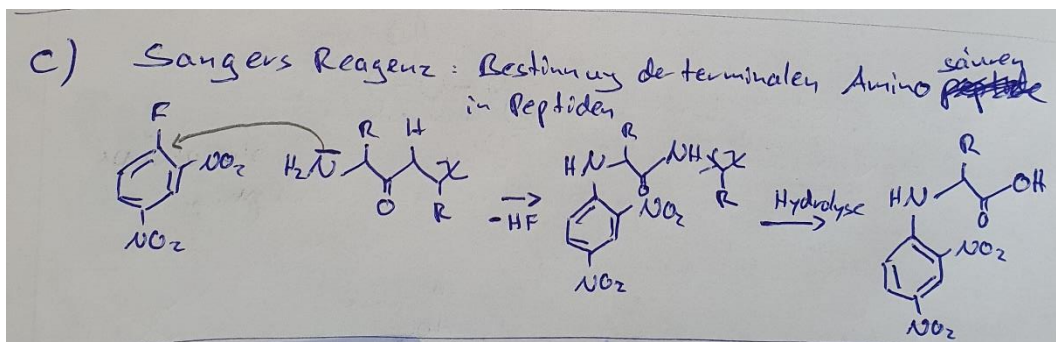 c) Sangers Reagenz : Bestimmung der terminalen Aminosäuren
in Peptiden
F
NO₂
NO₂
H₂N
R
H
O
R
X
- HF
HN
R
O
NH
X
R
NO₂
NO₂
Hydrolyse
HN
R
O
OH
NO₂
NO₂